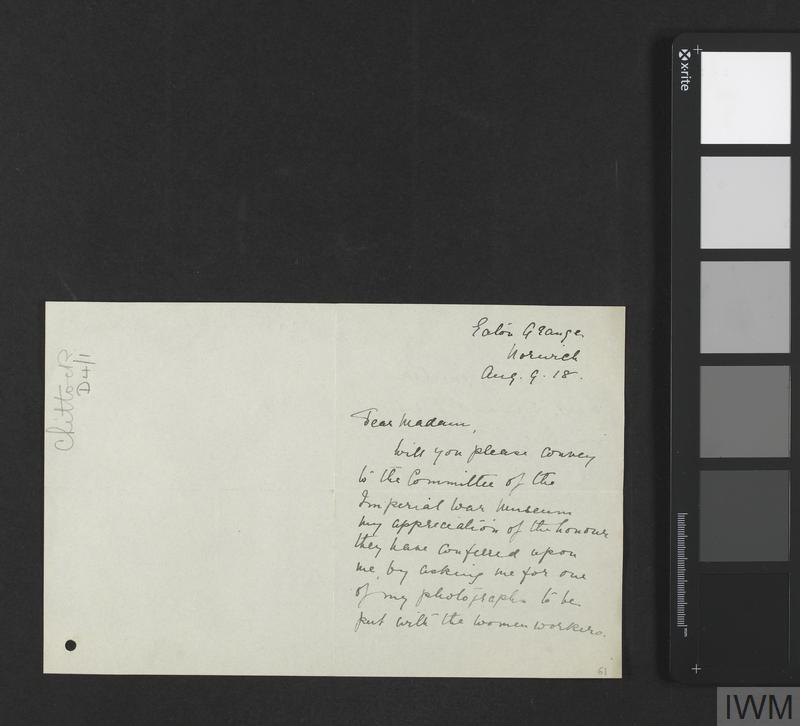 Chittock
D4/1
Eaton Grange
Norwich
Aug. 9. 18.
Dear Madam,
Will you please convey
to the Committee of the
Imperial War Museum
my appreciation of the honour
they have conferred upon
me, by asking me for one
of my photographs to be
put with the women workers.
61
x-rite
mm
IWM